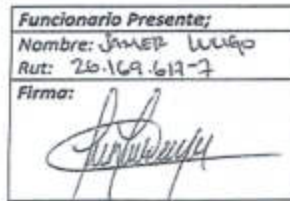 Funcionario Presente;
Nombre: JAMER LUGO
Rut: 26.169.617-7
Firma: